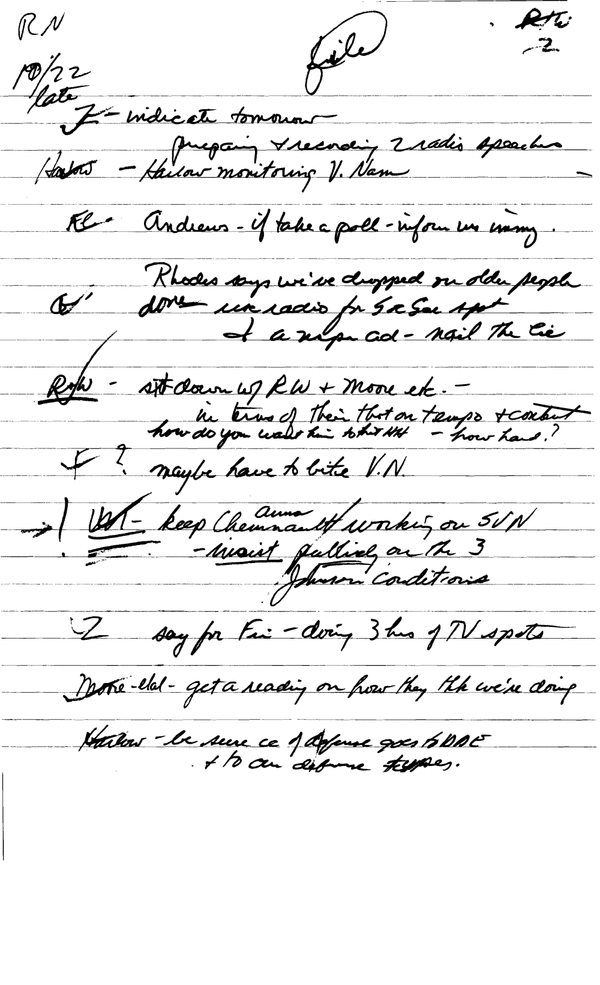 RN
file
2
10/22
late
Z - indicate tomorrow
preparing + recording 2 radio speeches
Harlow - Harlow monitoring V. Nam
Andrews - if take a poll - inform us immy.
Rhodes says we've dropped on older people
done use radio for Soc Sec spot
+ a nwpr ad - nail the lie
RW - sit down w/ RW + Moore etc. -
in terms of their thot on tempo + content
how do you want him to hit HH - how hard?
? maybe have to bite V.N.
! keep Anna Chennault working on SVN
- insist publicly on the 3
Johnson conditions
Z say for Fri - doing 3 hrs of TV spots
Moore - etal - get a reading on how they thk we're doing
Harlow - be sure cc of defense goes to DDE
+ to our defense types.